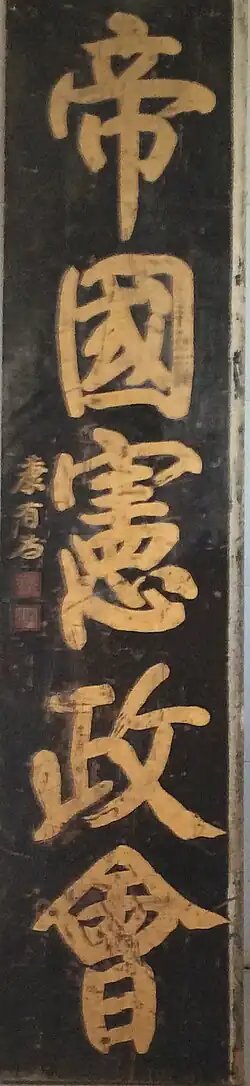 帝國憲政會
康有為